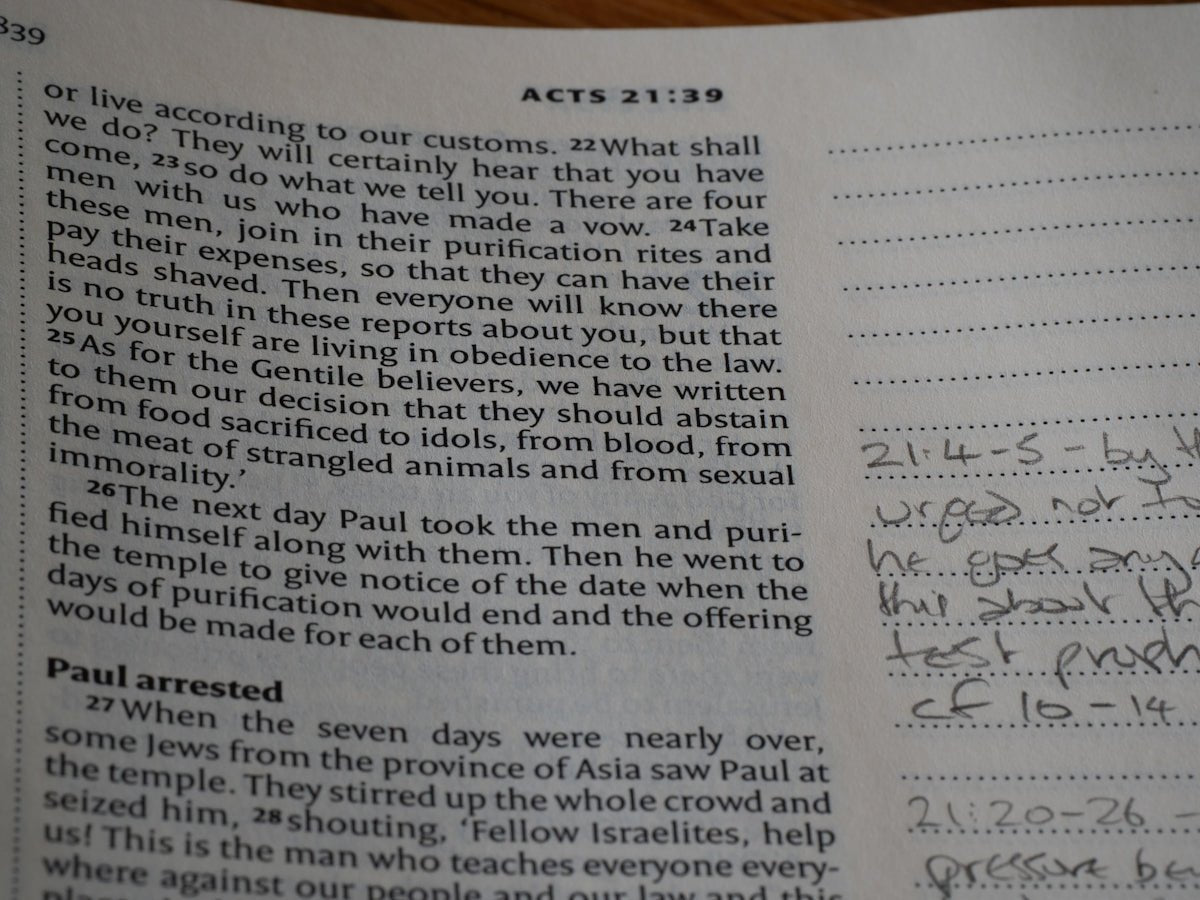 339
ACTS 21:39
or live according to our customs. 22 What shall
we do? They will certainly hear that you have
come, 23 so do what we tell you. There are four
men with us who have made a vow. 24 Take
these men, join in their purification rites and
pay their expenses, so that they can have their
heads shaved. Then everyone will know there
is no truth in these reports about you, but that
you yourself are living in obedience to the law.
25 As for the Gentile believers, we have written
to them our decision that they should abstain
from food sacrificed to idols, from blood, from
the meat of strangled animals and from sexual
immorality.’
26 The next day Paul took the men and puri-
fied himself along with them. Then he went to
the temple to give notice of the date when the
days of purification would end and the offering
would be made for each of them.
Paul arrested
27 When the seven days were nearly over,
some Jews from the province of Asia saw Paul at
the temple. They stirred up the whole crowd and
seized him, 28 shouting, ‘Fellow Israelites, help
us! This is the man who teaches everyone every-
where against our people and our law and this
21:4-5 - by
urged not to
he goes
this about
test
cf 10-14
21:20-26 -
pressure